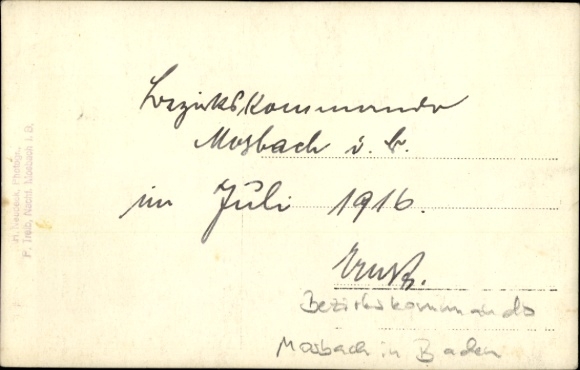 Bezirkskommando
Mosbach i. B.
im Juli 1916.
Ernst.
Bezirkskommando
Mosbach in Baden
Photogr.
F. Treib, Nachf. Mosbach i. B.